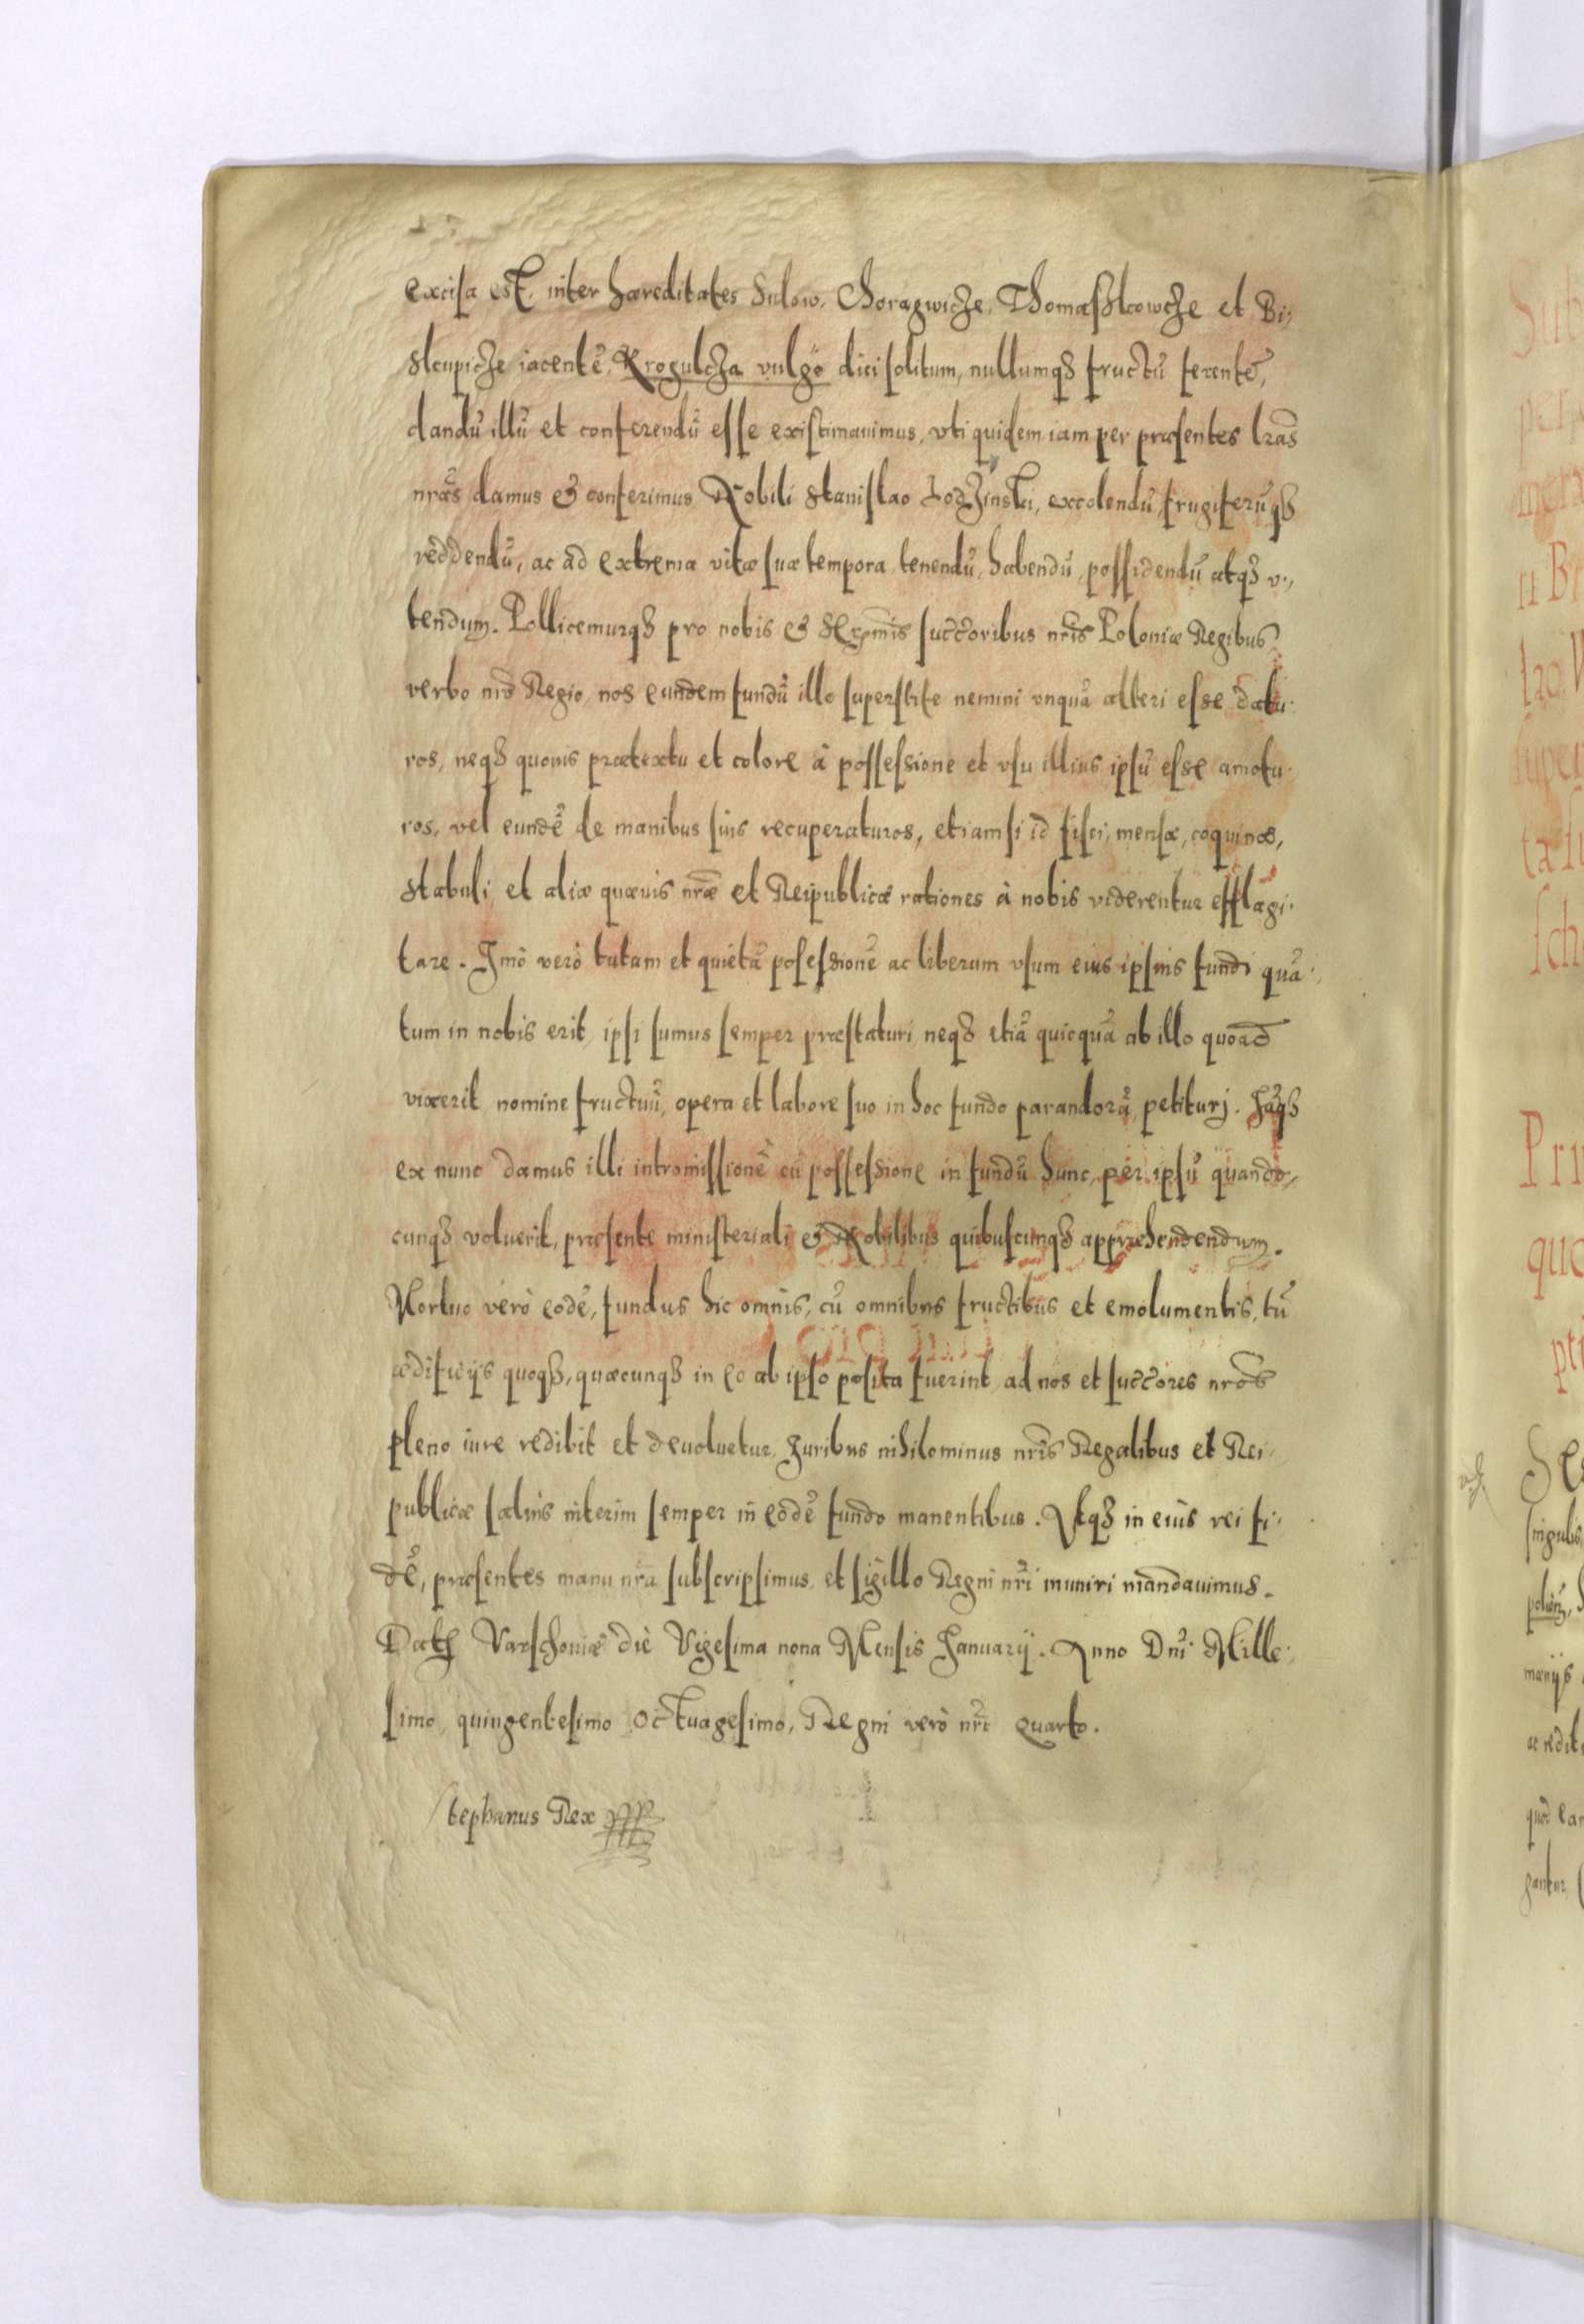 excisa est, inter hæreditates Sulow, Choragwicze, Thomaszkowcze et Bi,
skupicze iacentē, Krogulcza vulgo dici solitum, nullumqȝ fructū ferentē,
dandū illū et conferendū esse existimauimus, vti quidem iam per præsentes lr̃as
nr̃as damus & conferimus Nobili Stanislao Lodzinski, excolendū, frugiferūqȝ
reddendū, ac ad extrema vitæ suæ tempora, tenendū, habendū, possidendū atqȝ v,,
tendum. Pollicemurqȝ pro nobis & Serenīs succ̃oribus nr̃is Poloniæ Regibus
verbo nr̃o Regio, nos eundem fundū illo superstite nemini vnquā alteri esse datu,
ros, neqȝ quouis prætextu et colore à possessione et vsu illius ipsū esse amotu,
ros, vel eundē de manibus suis recuperaturos, etiamsi id fisci, mensæ, coquinæ,
stabuli, et aliæ quæuis nr̃æ et Reipublicæ rationes à nobis viderentur efflagi,
tare. Imò verò tutam et quietā possessionē ac liberum vsum eius ipsius fundi quā,
tum in nobis erit, ipsi sumus semper præstaturi, neqȝ etiā quicquā ab illo quoad
vixerit nomine fructuū, opera et labore suo in hoc fundo parandorū, petituri. Iāqȝ
ex nunc damus illi intromissionē cū possessione in fundū hunc, per ipsū quando,
cunqȝ voluerit, præsente ministeriali & Nobilibus quibuscunqȝ apprehendendum.
Mortuo verò eodē, fundus hic omnis, cū omnibus fructibus et emolumentis, tū
ædificijs quoqȝ, quæcunqȝ in eo ab ipso posita fuerint, ad nos et succ̃ores nr̃os
pleno iure redibit et deuoluetur, Iuribus nihilominus nr̃is Regalibus et Rei,
publicæ saluis interim semper in eodē fundo manentibus. Atqȝ in eius rei fi,
dē, præsentes manu nr̃a subscripsimus, et sigillo Regni nr̃i muniri mandauimus.
Dat̃ Varschouiæ die Vigesima nona Mensis Ianuarij. Anno Dnī Mille,
simo, quingentesimo Octuagesimo, Regni verò nr̃i Quarto.
Stephanus Rex